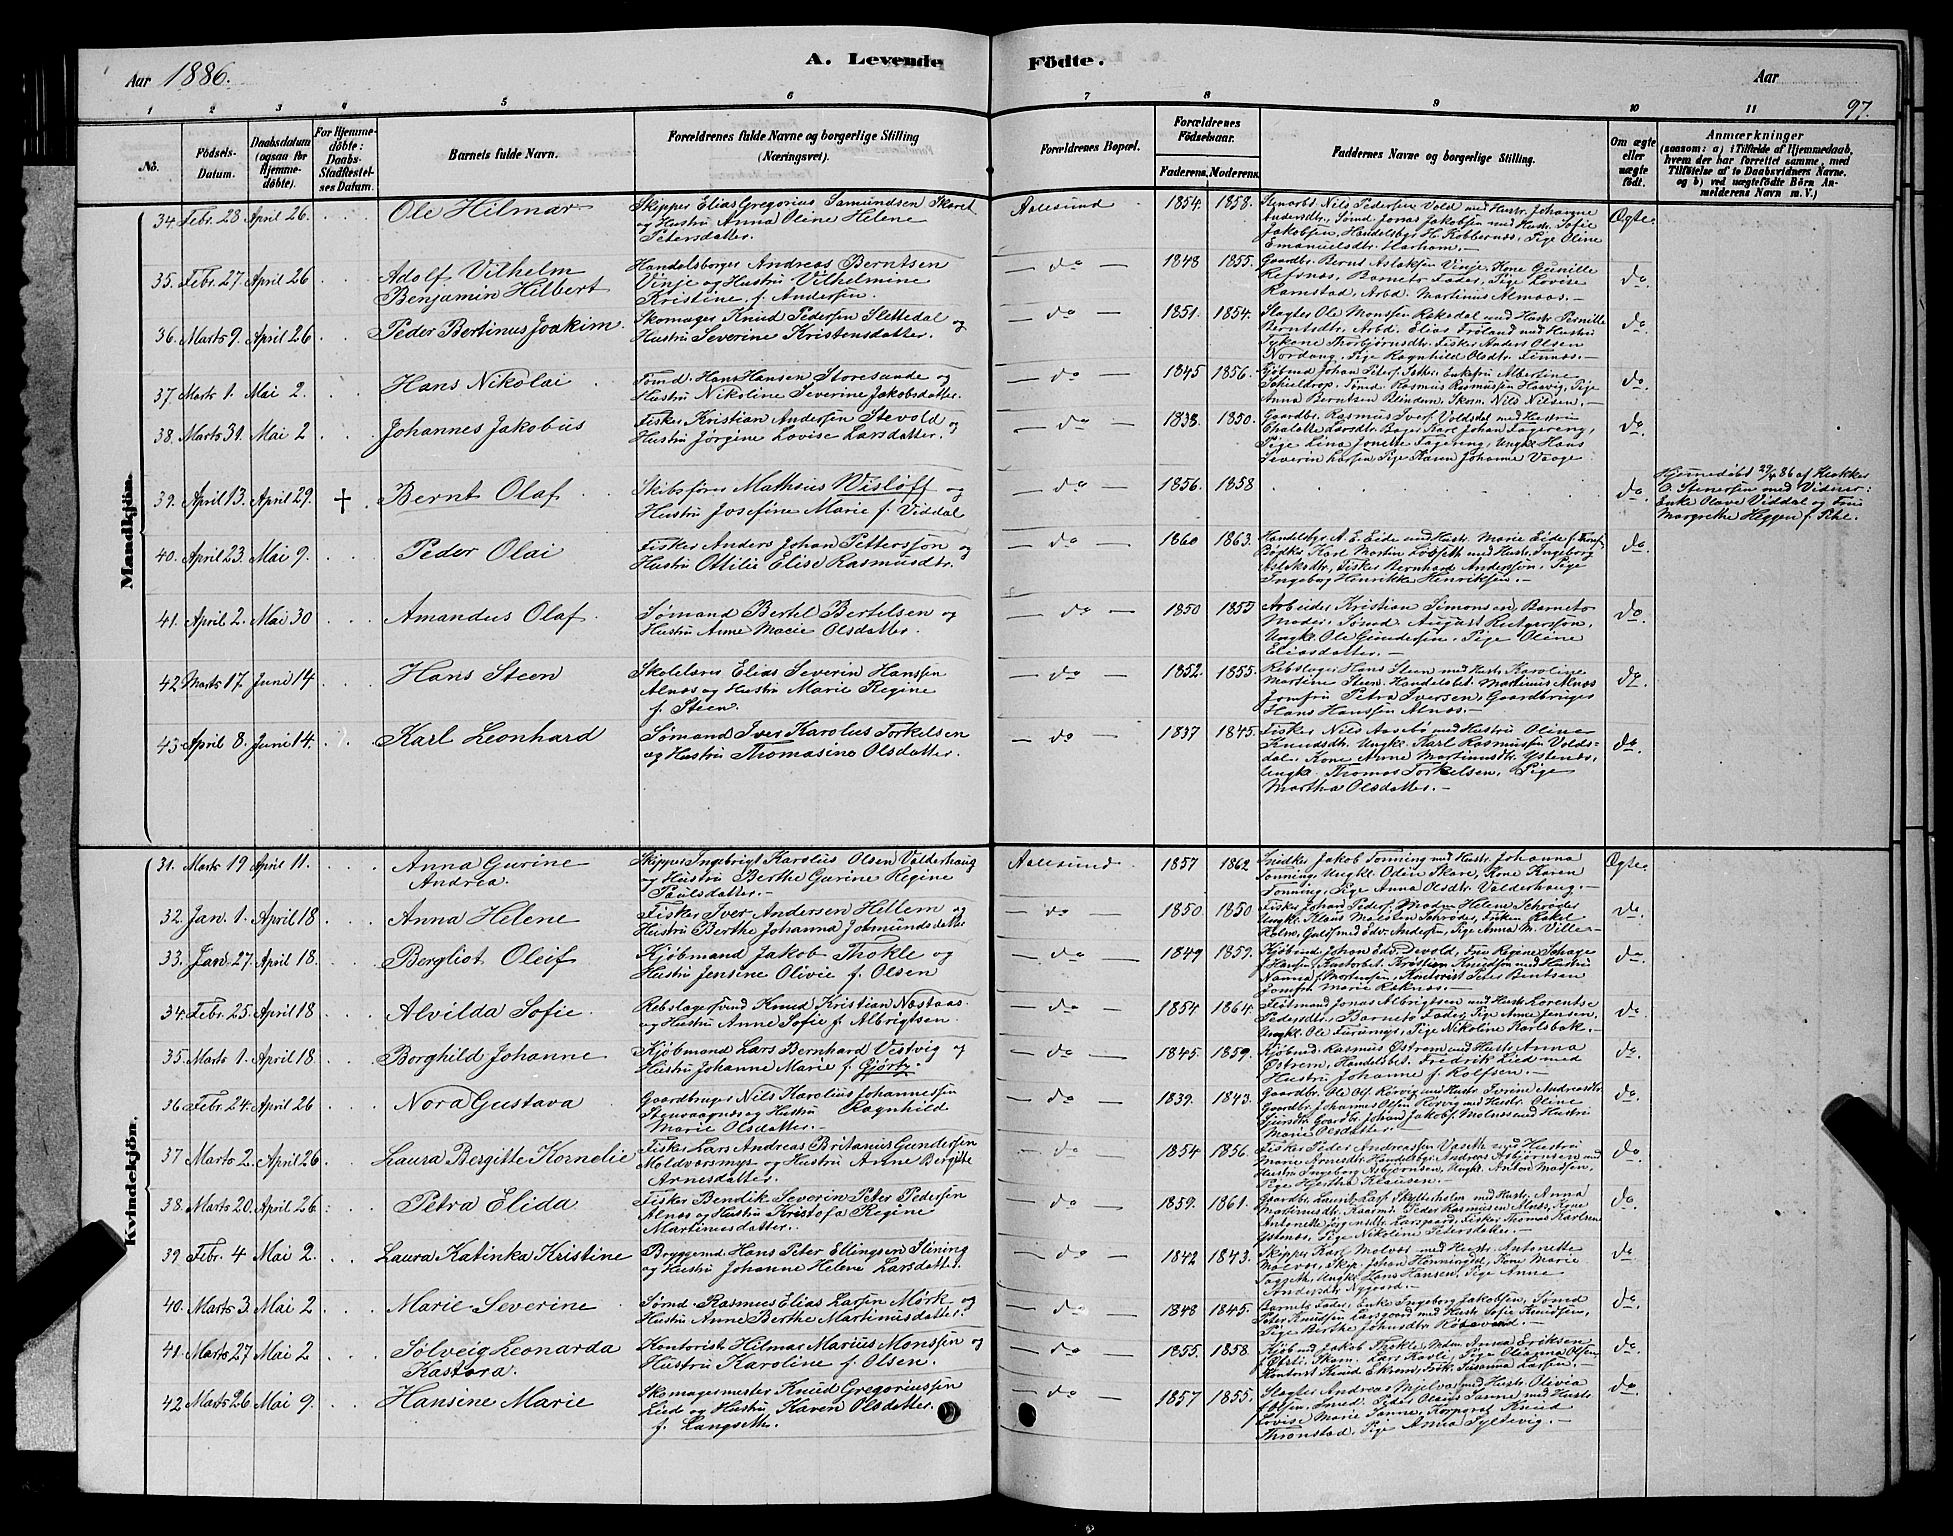 Aar 1886.
A. Levende Födte.
Aar
97.
1 2 3 4 5 6 7 8 9 10 11
No.
Födsels-Datum.
Daabsdatum (ogsaa for Hjemme-döbte).
For Hjemme-döbte: Daabs-Stadfæstelses Datum.
Barnets fulde Navn.
Forældrenes fulde Navne og borgerlige Stilling (Næringsvei).
Forældrenes Bopæl.
Forældrenes Födselsaar.
Faderens. Moderens.
Faddernes Navne og borgerlige Stilling.
Om ægte eller uægte födt.
Anmærkninger
(saasom: a) i Tilfælde af Hjemmedaab, hvem der har forrettet samme, med Tilföielse af to Daabsvidners Navne, og b) ved uægtefödte Börn Anmelderens Navn m. V.)
Mandkjön.
34. Febr. 28 April 26. Ole Hilmar
Skipper Elias Gregorius Samundsen Skaret
og Hustru Anna Oline Helene
Petersdatter.
Aalesund 1854. 1858.
Nils Pedersen Vold med Hustr. Johanne
Andersdtr., Sömd. Jonas Jakobsen med Hustr. Sofie
Jakobsen, Handelsbgr. H. Kobbernæs, Pige Oline
Emanuelsdtr. Harham.
Ægte.
35. Febr. 27. April 26 Adolf Vilhelm
Benjamin Hilbert
Handelsborger Andreas Berntsen
Vinje og Hustru Vilhelmine
Kristine f. Andersen.
do 1848 1855.
Gaardbr. Bernt Aslaksen Vinje, Kone Gunille
Refsnæs, Barnets Fader, Pige Lovise
Ramstad, Arbd. Martinus Almaas.
do
36. Marts 9. April 26 Peder Bertinus Joakim.
Skomager Knud Pedersen Slettedal og
Hustru Severine Kristensdatter.
do 1851. 1854.
Slagter Ole Monsen Rekedal med Hustr. Pernille
Berntsdtr. Arbd. Elias Fröland med Hustru
Thorbjörnsdtr. Fisker Anders Olsen
Nordang, Pige Ragnhild Olsdtr. Finnæs.
do
37 Marts 1. Mai 2. Hans Nikolai
Tömd. Hans Hansen Storesande og
Hustru Nikoline Severine Jakobsdatter.
do 1845 1856.
Kjöbmd. Johan Peter Enkefru Albertine
Schieldrop. Sömd. Rasmus Rasmussen Haavig, Pige
Anna Berntsen Blindem, Skom. Nils Nilsen.
do
38. Marts 31. Mai 2 Johannes Jakobus
Fisker Kristian Andersen Stevold og
Hustru Jörgine Lovise Larsdatter.
do 1838. 1850.
Gaardbr. Rasmus Iversen Voldsdal med Hustru
Larsdtr. Bager Karl Johan Fagereng,
Pige Lina Jonette Fagereng, Ungkl. Hans
Severin Larsen, Pige Karen Johanne Vaage.
do
39. April 13. April 29. † Bernt Olaf
Skibsförer Mathæus Wislöff og
Hustru Josefine Marie f. Viddal
do 1856. 1858
do
Hjemmedöbt 29/4 86 af Klokker
O. Stenersen med Vidner:
Enke Olave Viddal og Frøi
Margrethe Heggen f. Pihl.
40. April 23. Mai 9. Peder Olai
Fisker Anders Johan Pettersson og
Hustru Ottilie Elise Rasmusdtr.
do 1860 1863.
Handelsbgr. A. E. Eide med Hustr. Marie Eide
Bödker Karl Martin Lobseth med Hustr. Ingeborg
Aslaksdtr., Fisker Bernhard Anderssön, Pige
Ingeborg Henrikke Henriksen.
do
41. April 2. Mai 30 Amandus Olaf
Sömand Bertel Bertelsen og
Hustru Anne Marie Olsdatter.
do 1850 1855
Arbeider Kristian Simonsen, Barnets
Moder, Sömd. August Rutgerssön,
Ungkl. Ole Gundersen, Pige Oline
Eliasdatter.
do
42 Marts 17. Juni 14 Hans Steen
Skolelærer Elias Severin Hanssen
Alnæs og Hustru Marie Regine
f. Steen.
do 1852. 1855.
Rebslager Hans Steen med Hustr. Karoline
Martine Steen, Handelsbet. Martinus Alnæs
Jomfru Petra Iversen, Gaardbruger
Hans Hanssen Alnæs.
do.
43 April 8. Juni 14. Karl Leonhard
Sömand Iver Karolus Torkelsen
og Hustru Thomasine Olsdatter.
do 1837 1845.
Fisker Nils Aasebö med Hustru Oline
Knudsdtr. Ungkl. Karl Rasmussen Volds-
dal. Kone Anne Martinusdtr. Ystenæs,
Ungkl. Thomas Torkelsen, Pige
Martha Olsdatter.
do.
Kvindekjön.
31. Marts 19 April 11. Anna Gurine
Andrea.
Skipper Ingebrigt Karolus Olsen Valderhaug
og Hustru Berthe Gurine Regine
Paulsdatter.
Aalesund. 1857 1862
Snidker Jakob Tonning med Hustr. Johanna
Tonning, Ungkl. Odin Skare, Kone Karen
Tonning, Pige Anna Olsdtr. Valderhaug.
Ægte.
32. Jan. 1. April 18 Anna Helene
Fisker Iver Andersen Hellem og
Hustru Berthe Johanna Jomundsdatter
do 1850. 1850
Fisker Johan Peder Madm Helene Schröder
Ungkl. Klaus Schröder, Rakel
Holm, Guldsmed Edv. Andersen, Pige Anna M. Ville
do.
33. Jan. 27. April 18. Bergliot Oleif
Kjöbmand Jakob Thokle og
Hustru Jensine Olivie f. Olsen
do 1849 1859.
Kjöbmd. Johan Edv. Devold, Fru Regine Schage
f. Hansen, Kristian Knudsen med Hustru
Nanna f. Mortensen, Kontorist Peter Berntsen
Jomfru Marie Raknæs.
do
34. Febr. 25. April 18 Alvilda Sofie
Rebslagersvend Knud Kristian Næstaas
og Hustru Anne Sofie f. Albrigtsen
do 1854 1864.
Flötmand Jonas Albrigtsen med Hustr. Lorentse
Pedersdtr., Barnets Fader, Pige Anne Jensen,
Ungkl. Ole Furumyr, Pige Nikoline Karlsbak.
do
35. Marts 1. April 18 Borghild Johanne
Kjöbmand Lars Bernhard Vestvig og
Hustru Johanne Marie f. Gjörtz.
do 1845. 1859.
Kjöbmd. Rasmus Östrem med Hustr. Anna
Östrem, Handelsbet. Fredrik Lied med
Hustru Johanne f. Rolfsen.
do.
36 Febr. 24. April 26 Nora Gustava
Gaardbruger Nils Karolius Johannessen
Stenvaagnæs og Hustru Ragnhild
Marie Olsdatter.
do 1839. 1843.
Gaardbr. Ole Ols. Rörvig med Hustr. Serine Andreasdtr.
Gaardbr. Johannes Olsen Rörvig med Hustr. Oline
Sjursdtr. Gaardbr. Johan Jakobs. Molnes med Hustru
Marie Olsdatter.
do.
37 Marts 2. April 26. Laura Bergitte Kornelie
Fisker Lars Andreas Britanius Gundersen
Moldværsmyr og Hustru Anne Bergitte
Arnesdatter.
do 1854 1856.
Fisker Peder Andreassen Vaseth med Hustru
Marie Arnesdtr. Handelsbgr. Andreas Asbjörnsen med
Hustru Ingeborg Asbjörnsen, Ungkl. Anton Madsen,
Pige Hjertha Klausen.
do.
38. Marts 20. April 26. Petra Elida
Fisker Bendik Severin Peter Pedersen
Alnæs og Hustru Kristofa Regine
Martinusdatter.
do 1859. 1861.
Gaardbr. Laurits Lars. Skytterholm med Hustr. Anna
Martinusdtr. Peder Rasmussen Alnæs, Kone
Antonette Larsgaard, Fisker Thomas Karlsen
Ystenæs, Pige Nikoline Petersdatter.
do
39 Febr. 4 Mai 2. Laura Katinka Kristine
Bryggemd. Hans Peter Ellingsen Slining
og Hustru Johanne Helene Larsdatter.
do 1842 1843.
Skipper Karl Molvær med Hustr. Antonette
Molvær, Skip. Johan Henningdal, Kone Marie
Ungkl. Hans Hansen, Pige Anne
Andersdtr. Nygaard.
do
40. Marts 3. Mai 2 Marie Severine
Sömd. Rasmus Elias Larsen Mörk og
Hustru Anne Berthe Martinusdatter
do 1848 1845.
Barnets Fader, Enke Ingeborg Jakobsen, Sömd.
Peter Knudsen Larsgaard med Hustr. Sofie Knudsen,
Pige Berthe Johnsdtr. Röbevand.
do
41. Marts 27 Mai 2 Sölveig Leonarda
Kastora.
Kontorist Hilmar Marius Monssen og
Hustru Karoline f. Olsen.
do 1855. 1858.
Kjöbmd. Jakob Thokle, Mdm. Anna Eriksen
Skom. Lars Kavli, Pige Olianna Olsen
Kontorist Knud Ekrem, Frök. Susanna Larsen.
do.
42 Marts 26 Mai 9. Hansine Marie
Skomagermester Knud Gregoriussen
Lied og Hustru Karen Olsdatter
f. Langsetter.
do 1857 1855.
Slagter Andreas Mjelva med Hustr. Olivia
f. Olsen, Smed. Peder Olaus Sanne med Hustr.
Lovise Marie Sanne, Korporal Knud
Thronstad, Pige Anna Syltevig.
do